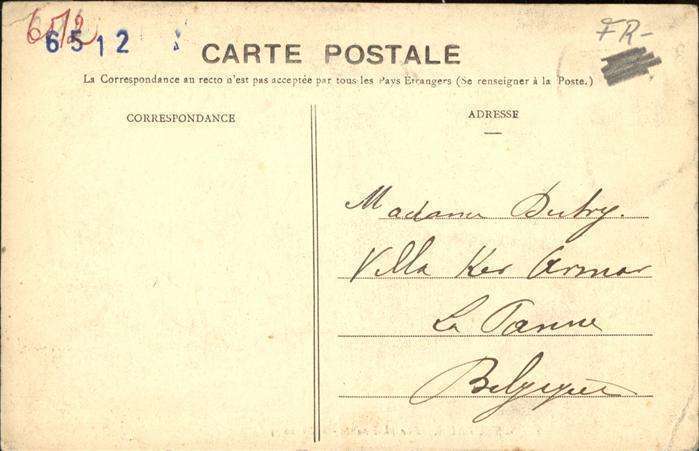 6512
6512
FR-
CARTE POSTALE
La Correspondance au recto n'est pas acceptée par tous les Pays Étrangers (Se renseigner à la Poste.)
CORRESPONDANCE
ADRESSE
Madame Dutry.
Villa Ker Armor
La Panne
Belgique